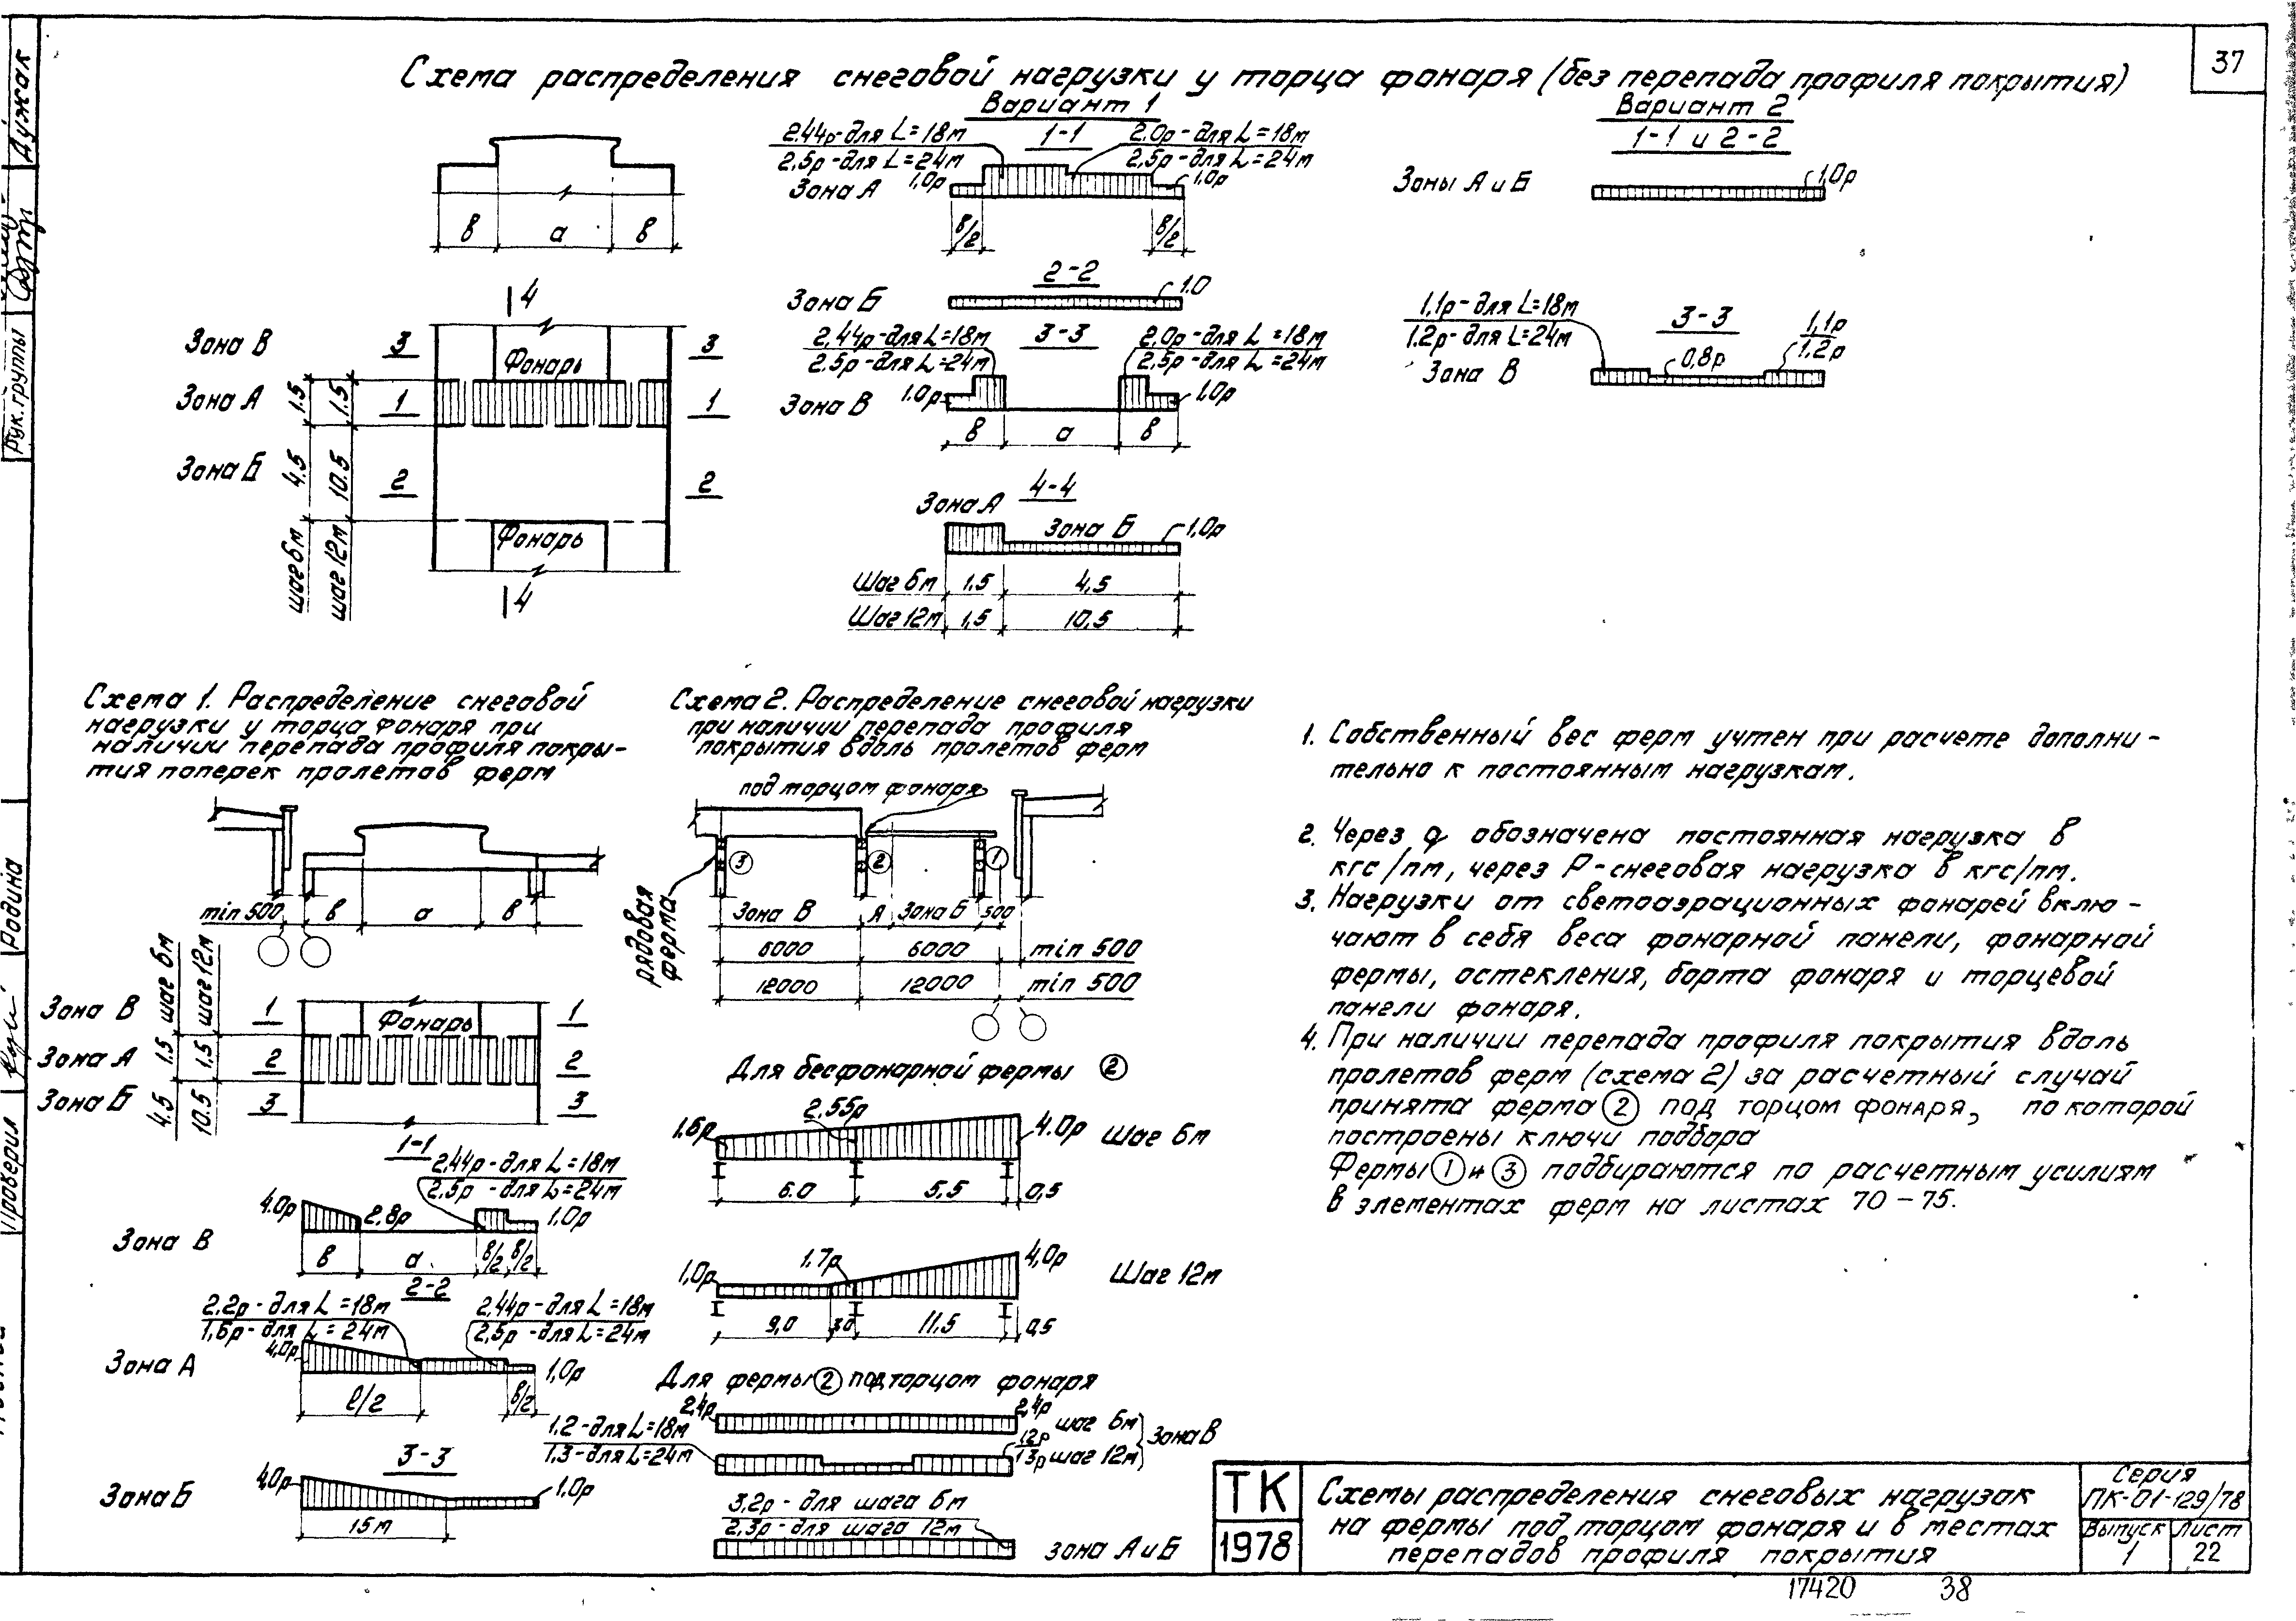 37
Схема распределения снеговой нагрузки у торца фонаря (без перепада профиля покрытия)
Вариант 1
1-1
2.44р-для L=18м
2,5р-для L=24м
2,0р-для L=18м
2,5р-для L=24м
Зона А
1,0р
1,0р
в/2
в/2
Вариант 2
1-1 и 2-2
Зоны А и Б
1,0р
в
а
в
2-2
Зона Б
1.0
3-3
2,44р-для L=18м
2.5р-для L=24м
2,0р-для L=18м
2,5р-для L=24м
Зона В
1.0р
1,0р
в
а
в
1,1р-для L=18м
1.2р-для L=24м
3-3
1,1р
1,2р
0,8р
Зона В
4
Зона В
3
Фонарь
3
Зона А
1.5
1.5
1
1
Зона Б
4.5
10.5
2
2
шаг 6м
шаг 12м
Фонарь
4
4-4
Зона А
Зона Б
1,0р
Шаг 6м
1.5
4,5
Шаг 12м
1,5
10.5
Схема 1. Распределение снеговой
нагрузки у торца фонаря при
наличии перепада профиля покры-
тия поперек пролетов ферм
min 500
в
а
в
шаг 6м
шаг 12м
Зона В
1
Фонарь
1
Зона А
1.5
1.5
2
2
Зона Б
4.5
10.5
3
3
1-1
2,44р-для L=18м
2,5р-для L=24м
4.0р
2,8р
1,0р
Зона В
в
а
в/2
в/2
2-2
2.2р-для L=18м
1,6р-для L=24м
2,44р-для L=18м
2,5р-для L=24м
4,0р
1,0р
Зона А
ℓ/2
в/2
3-3
4,0р
1,0р
Зона Б
15м
Схема 2. Распределение снеговой нагрузки
при наличии перепада профиля
покрытия вдоль пролетов ферм
под торцом фонаря
3
2
1
рядовая
ферма
Зона В
А
Зона Б
500
6000
6000
min 500
12000
12000
min 500
Для бесфонарной фермы 2
1.6р
2,55р
4.0р
Шаг 6м
6.0
5,5
0,5
1,0р
1.7р
4,0р
Шаг 12м
9,0
3.0
11,5
0,5
Для фермы 2 под торцом фонаря
2,4р
2,4р
шаг 6м
1.2-для L=18м
1,3-для L=24м
1,2р
1,3р
шаг 12м
Зона В
3,2р-для шага 6м
2,3р-для шага 12м
зона А и Б
1. Собственный вес ферм учтен при расчете дополни-
тельно к постоянным нагрузкам.
2. Через q обозначена постоянная нагрузка в
кгс/пм, через Р-снеговая нагрузка в кгс/пм.
3. Нагрузки от светоаэрационных фонарей вклю-
чают в себя веса фонарной панели, фонарной
фермы, остекления, борта фонаря и торцевой
панели фонаря.
4. При наличии перепада профиля покрытия вдоль
пролетов ферм (схема 2) за расчетный случай
принята ферма 2 под торцом фонаря, по которой
построены ключи подбора
Фермы 1 и 3 подбираются по расчетным усилиям
в элементах ферм на листах 70-75.
ТК
1978
Схемы распределения снеговых нагрузок
на фермы под торцом фонаря и в местах
перепадов профиля покрытия
Серия
ПК-01-129/78
Выпуск
1
Лист
22
17420
38
Рук. группы
Дужак
Проверил
Родина